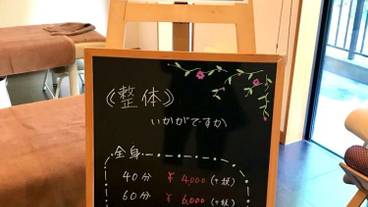 《整体》
いかがですか
全身
40分 ¥4000(+税)
60分 ¥6,000(+税)